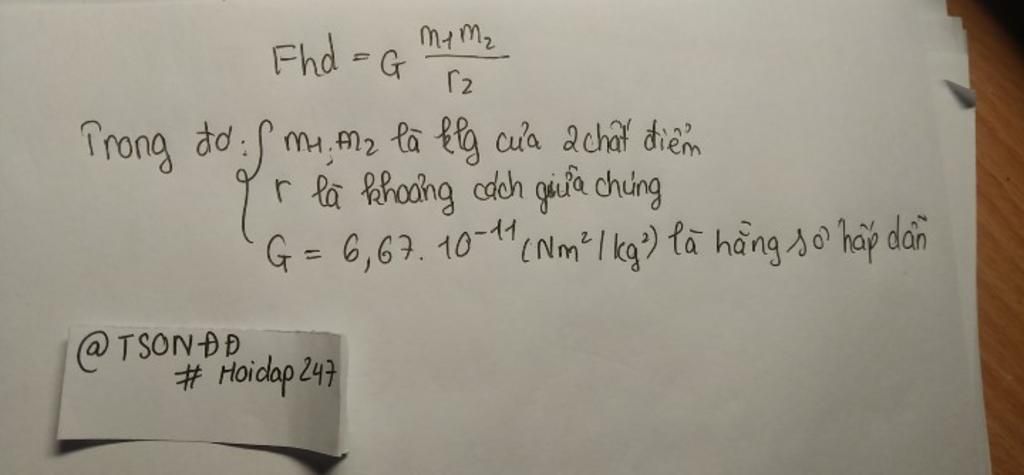 Fhd = G m1 m2 / r2
Trong đó: { m1; m2 là klg của 2 chất điểm
r là khoảng cách giữa chúng
G = 6,67. 10⁻¹¹ (Nm²/kg²) là hằng số hấp dẫn
@TSONĐĐ
# Hoidap247